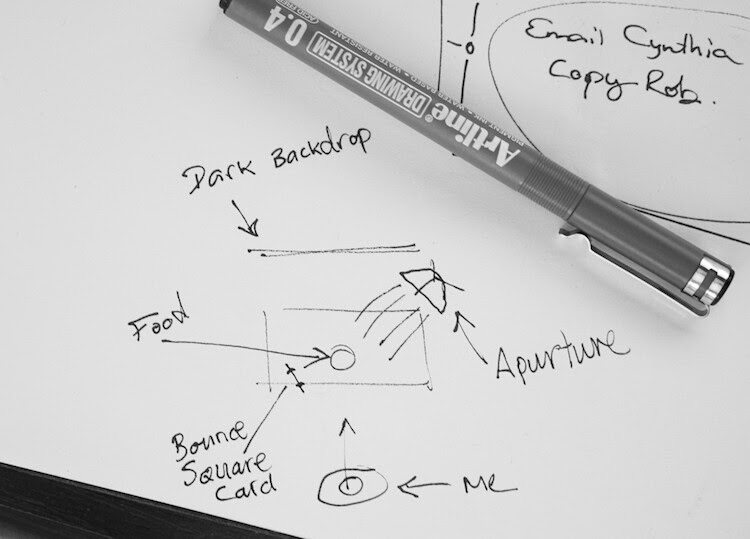 Email Cynthia
Copy Rob.
Artline®
DRAWING SYSTEM 0.4
PIGMENT INK • WATER BASED • WATER RESISTANT
Dark Backdrop
Food
Apurture
Bounce
Square
Card
Me